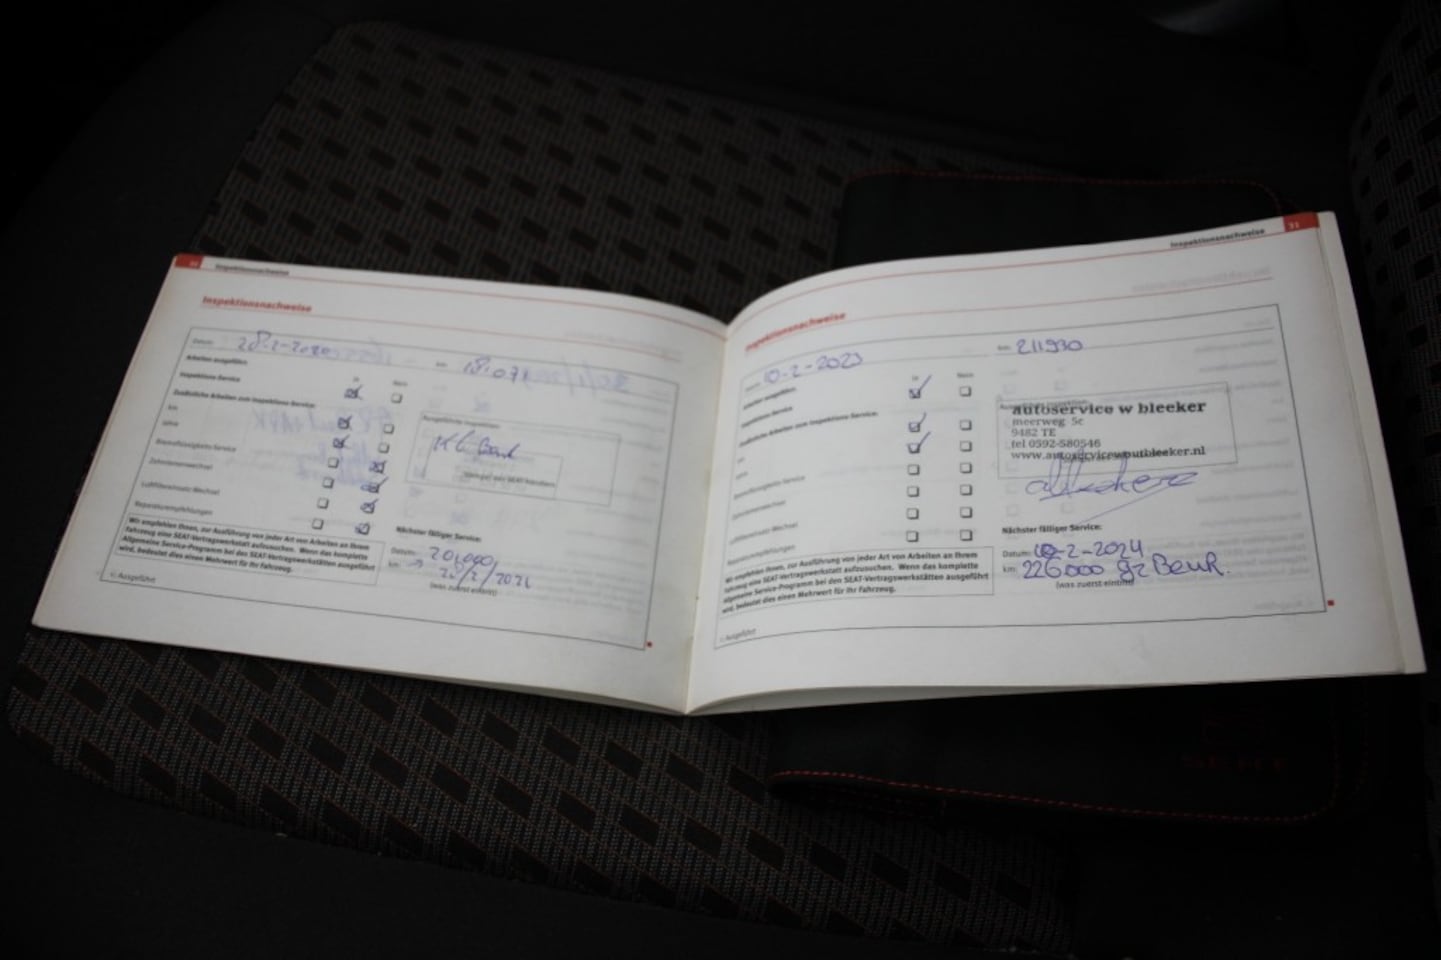 Inspektionsnachweise
Inspektionsnachweise
Datum: 28-2-2020
km:
Arbeiten ausgeführt:
Ja Nein
Inspektions-Service
Zusätzliche Arbeiten zum Inspektions-Service:
km
Jahre
Bremsflüssigkeits-Service
Zahnriemenwechsel
Luftfiltereinsatz-Wechsel
Reparaturempfehlungen
Ausgeführte Inspektion:
Stempel des SEAT-Händlers
Wir empfehlen Ihnen, zur Ausführung von jeder Art von Arbeiten an Ihrem
Fahrzeug eine SEAT-Vertragswerkstatt aufzusuchen. Wenn das komplette
Allgemeine Service-Programm bei den SEAT-Vertragswerkstätten ausgeführt
wird, bedeutet dies einen Mehrwert für Ihr Fahrzeug.
Nächster fälliger Service:
Datum: 201000
km:
(was zuerst eintritt)
Ausgeführt
Inspektionsnachweise 31
Inspektionsnachweise
Datum: 10-2-2023
km: 211930
Arbeiten ausgeführt:
Ja Nein
Inspektions-Service
Zusätzliche Arbeiten zum Inspektions-Service:
km
Jahre
Bremsflüssigkeits-Service
Zahnriemenwechsel
Luftfiltereinsatz-Wechsel
Reparaturempfehlungen
Ausgeführte Inspektion:
autoservice w bleeker
meerweg 5c
9482 TE
tel 0592-580546
www.autoservicewoutbleeker.nl
Wir empfehlen Ihnen, zur Ausführung von jeder Art von Arbeiten an Ihrem
Fahrzeug eine SEAT-Vertragswerkstatt aufzusuchen. Wenn das komplette
Allgemeine Service-Programm bei den SEAT-Vertragswerkstätten ausgeführt
wird, bedeutet dies einen Mehrwert für Ihr Fahrzeug.
Nächster fälliger Service:
Datum: 10-2-2024
km: 226000 gr Beurt.
(was zuerst eintritt)
Ausgeführt